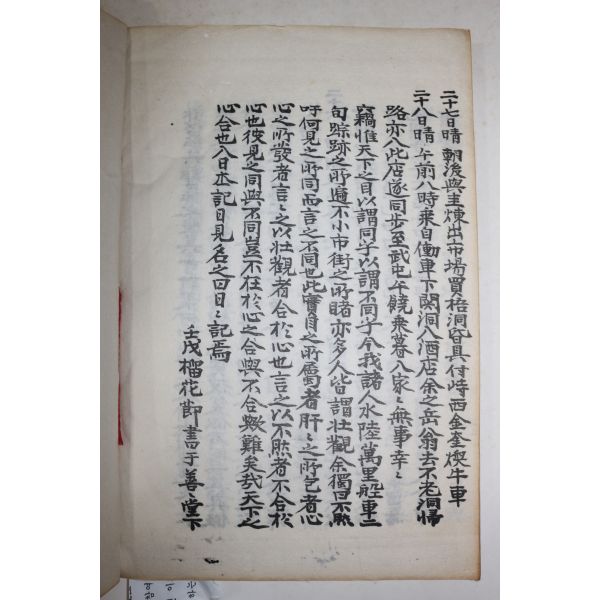 二十七日晴 朝後與主煉出市場買梧洞昏具付峙西金奎煥牛車
二十八日晴 午前八時乘自働車下関洞入酒店余之岳翁去不老洞帰
路亦入此店遂同步至武屯午饒乘暮入家〻無事幸〻
竊惟天下之目以謂同乎以謂不同乎今我諸人水陸萬里舩車二
旬踪跡之所遍不小市街之所睹亦多人皆謂壮觀余獨曰不然
吁何見之所同而言之不同也此實目之所屬者肝〻之所包者心
心之所發者言〻之以壮觀者合於心也言之以不然者不合於
心也彼見之同與不同豈不在於心之合與不合歟難矣哉天下之
心合也八日本記日見名之曰日〻記焉
壬戌榴花節書于善〻堂下